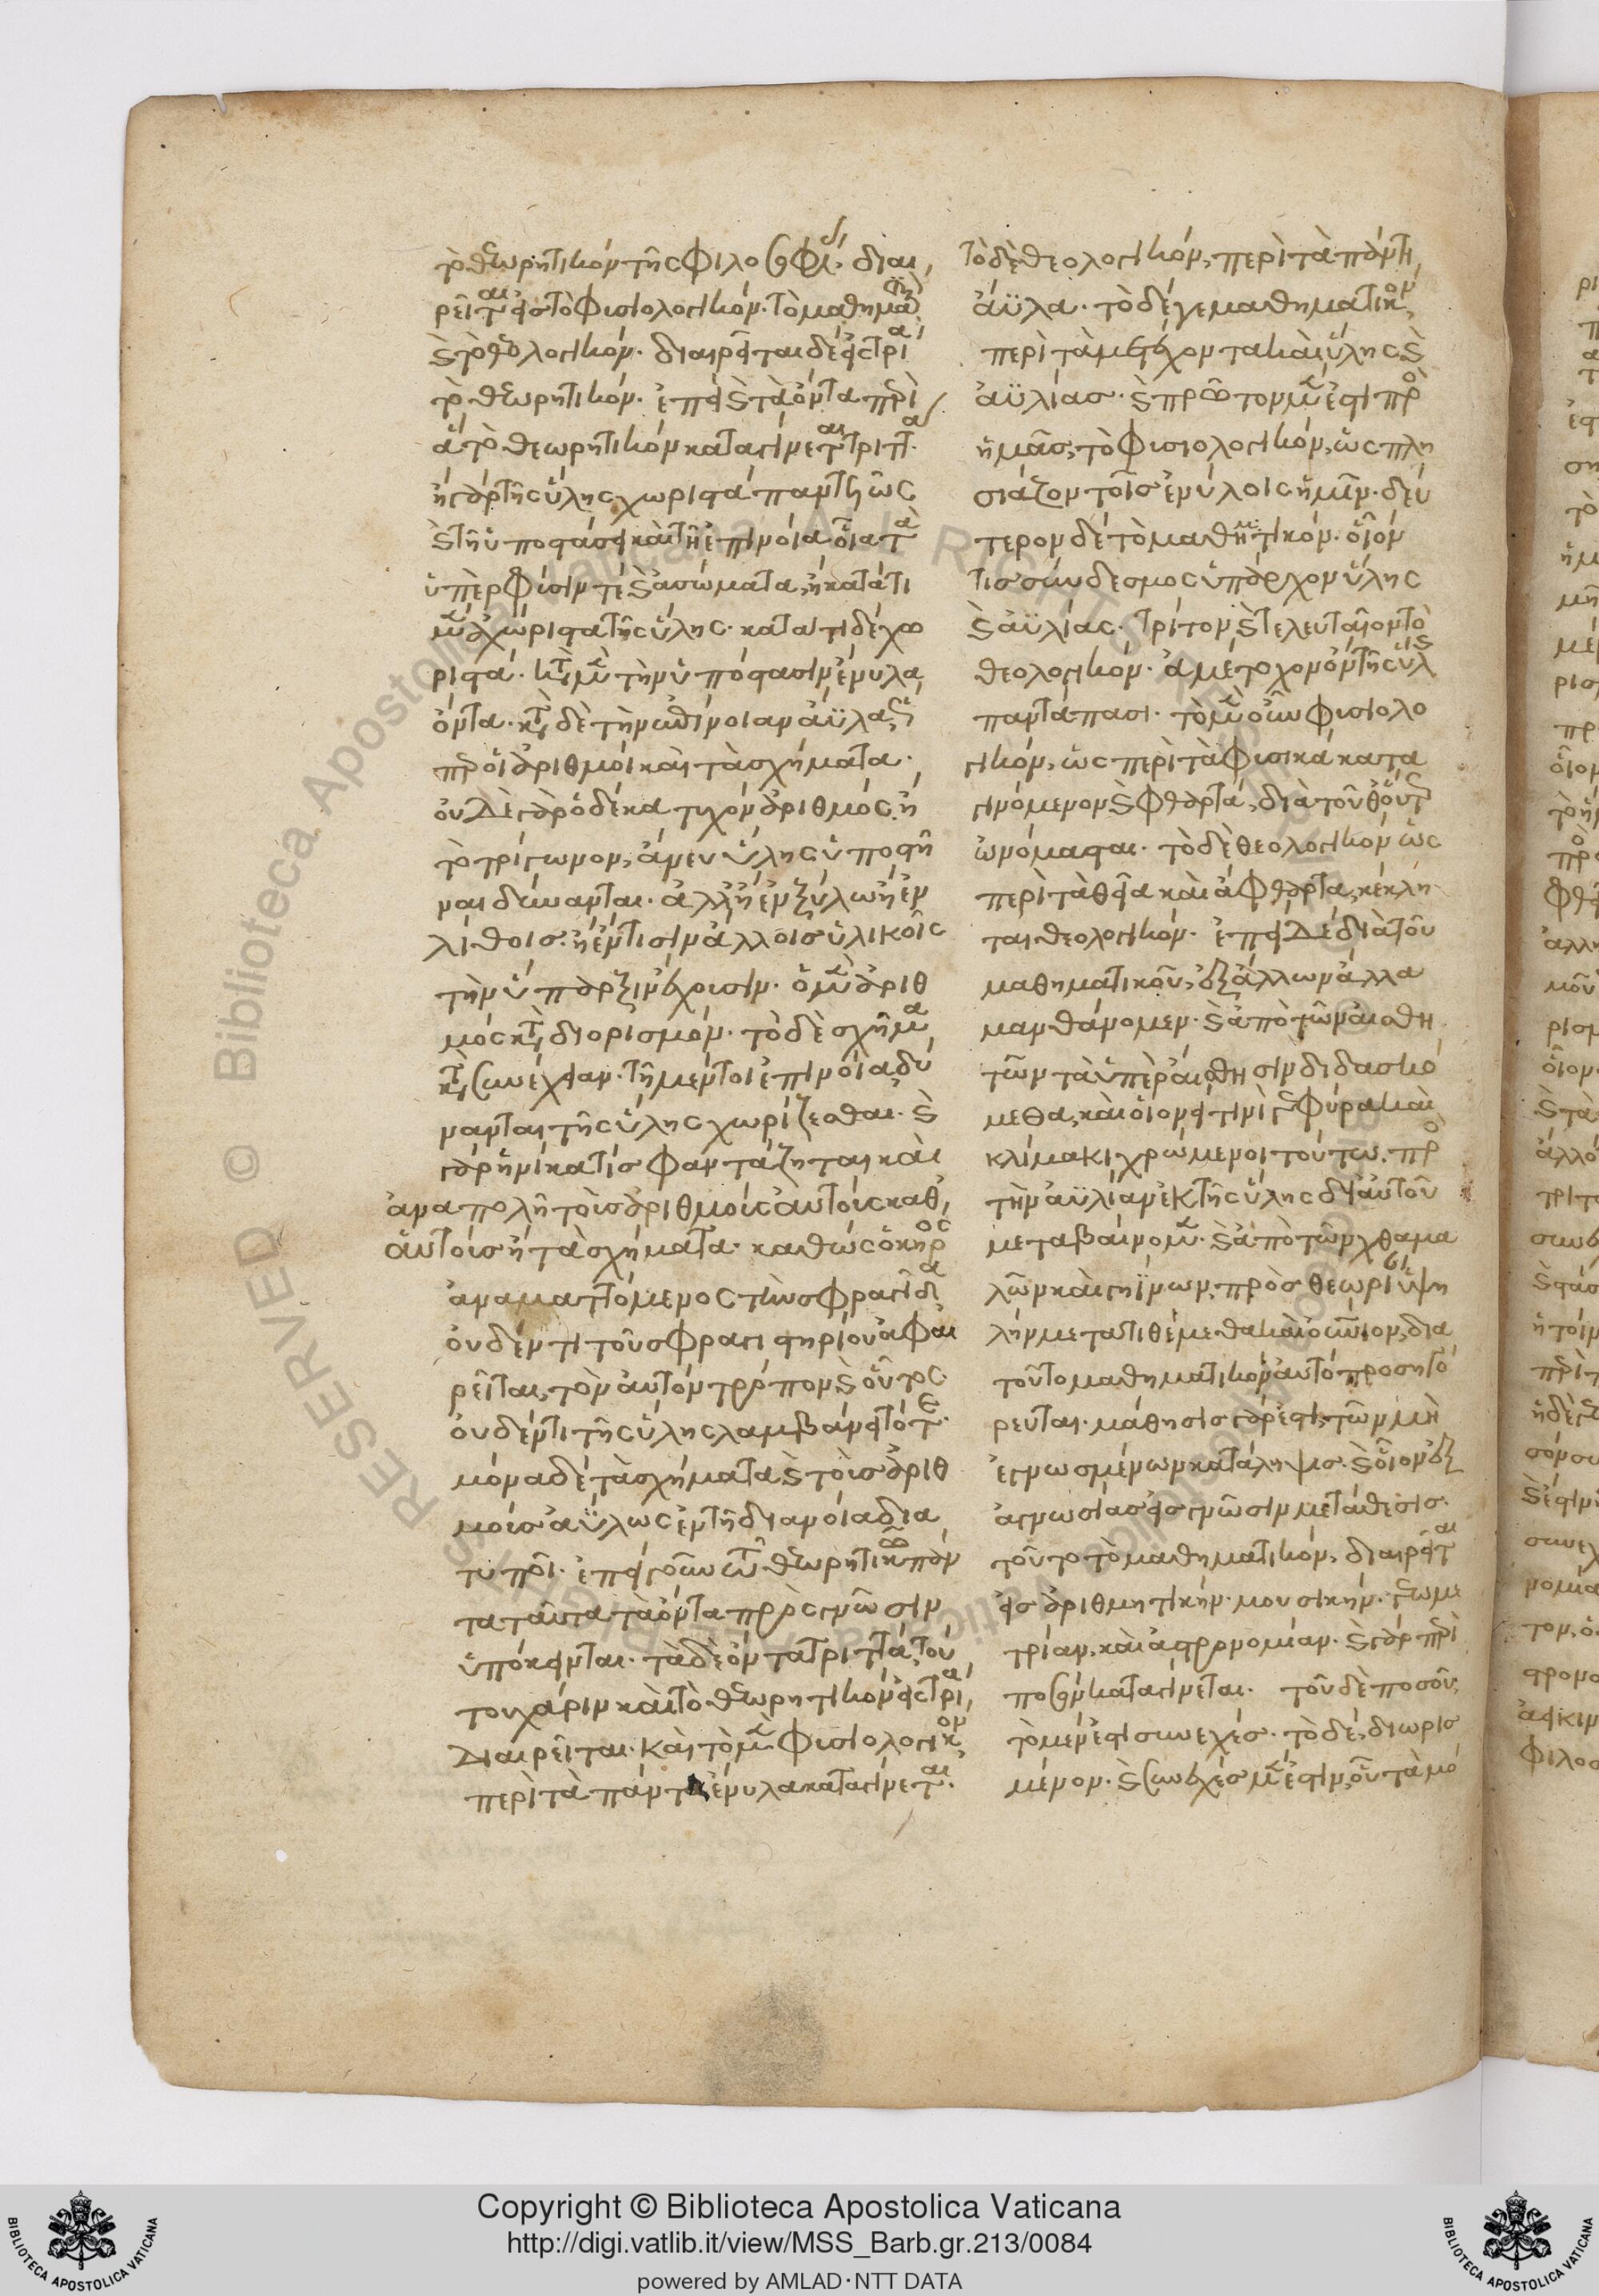 τὸ θεωρητικὸν τῆς φιλοσοφί διαι
ρεῖτ εἰς τὸ φυσιολογικόν· τὸ μαθημ
καὶ τὸ θεολογικόν· διαιρεῖται δὲ εἰς τρί
τὸ θεωρητικόν· ἐπεὶ καὶ τὰ ὄντα περὶ
ἃ τὸ θεωρητικὸν καταγίνετ τριττ·
ἢ γὰρ τῆς ὕλης χωριστὰ πάντη ὡς
καὶ τῇ ὑποστάσει καὶ τῇ ἐπινοία οἷα τὰ
ὑπὲρ φύσιν τὲ καὶ ἀσώματα, ἢ κατά τι
μὲν ἀχώριστα τῆς ὕλης· κατά τι δὲ χω
ριστά· κατὰ μὲν τὴν ὑπόστασιν ἔνυλα
ὄντα· κατὰ δὲ τὴν ἐπίνοιαν ἄϋλα
οἱ ἀριθμοὶ καὶ τὰ σχήματα·
οὐδὲ γὰρ ὁ δέκα τυχὸν ἀριθμὸς, ἢ
τὸ τρίγωνον, ἄνευ ὕλης ὑποστῆ
ναι δύνανται· ἀλλ' ἢ ἐν ξύλω ἢ ἐν
λίθοις· ἢ ἔν τισιν ἄλλοις ὑλικοῖς
τὴν ὕπαρξιν ἔχουσιν· ὁ μὲν ἀριθ
μὸς κατὰ διορισμόν· τὸ δὲ σχῆμα
κατὰ συνέχειαν· τῇ μέντοι ἐπινοία δύ
νανται τῆς ὕλης χωρίζεσθαι· καὶ
γὰρ ἡνίκα τις φαντάζηται καὶ
ἀναπολῆ τοῖς ἀριθμοῖς αὐτοῖς καθ'
αὑτοὺς ἢ τὰ σχήματα· καθὼς ὁ κηρὸς
ἀναματτόμενος τὴν σφραγῖδα
οὐδέν τι τοῦ σφραγιστηρίου ἀφαι
ρεῖται, τὸν αὐτὸν τρόπον καὶ οὗτος
οὐδέν τι τῆς ὕλης λαμβάνει τότε·
μόνα δὲ τὰ σχήματα καὶ τοῖς ἀριθ
μοὺς ἀΰλως ἐν τῇ διανοία δια
τυποῖ· ἐπεὶ γοῦν τῶ θεωρητικῶ πάν
τα ταῦτα τὰ ὄντα πρὸς γνῶσιν
ὑπόκεινται· τὰ δὲ ὄντα τριττά, τού
του χάριν καὶ τὸ θεωρητικὸν εἰς τρία
διαιρεῖται· καὶ τὸ μὲν φυσιολογικὸν
περὶ τὰ πάντη ἔνυλα καταγίνεται·
τὸ δὲ θεολογικόν, περὶ τὰ πάντη
ἄϋλα· τὸ δέ γε μαθηματικὸν
περὶ τὰ μετέχοντα καὶ ὕλης καὶ
ἀϋλίας· καὶ πρῶτον μὲν ἐστὶ πρὸς
ἡμᾶς, τὸ φυσιολογικόν, ὡς πλη
σιάζον τοῖς ἐνύλοις ἡμῖν· δεύ
τερον δὲ τὸ μαθηματικόν· οἷόν
τις σύνδεσμος ὑπάρχον ὕλης
καὶ ἀϋλίας· τρίτον καὶ τελευταῖον τὸ
θεολογικόν· ἀμέτοχον ὂν τῆς ὕλης
παντάπασι· τὸ μὲν οὖν φυσιολο
γικόν, ὡς περὶ τὰ φυσικὰ καταγ
γινόμενον καὶ φθαρτά, διὰ τοῦθ' οὕτως
ὠνόμασται· τὸ δὲ θεολογικὸν ὡς
περὶ τὰ θεῖα καὶ ἄφθαρτα, κέκλη
ται θεολογικόν· ἐπεὶ δὲ διὰ τοῦ
μαθηματικοῦ, ἐξ ἄλλων ἄλλα
μανθάνομεν· καὶ ἀπὸ τῶν αἰσθη
τῶν τὰ ὑπὲρ αἴσθησιν διδασκό
μεθα, καὶ οἱονεί τινι γεφύρα καὶ
κλίμακι χρώμενοι τούτω· πρὸς
τὴν ἀϋλίαν ἐκ τῆς ὕλης δι' αὐτοῦ
μεταβαίνομεν· καὶ ἀπὸ τῶν χθαμα
λῶν καὶ γηΐνων, πρὸς θεωρίαν ὑψη
λὴν μετατιθέμεθα καὶ οὐράνιον, δια
τοῦτο μαθηματικὸν αὐτὸ προσηγό
ρευται· μάθησις γάρ ἐστι, τῶν μὴ
ἐγνωσμένων κατάληψις· καὶ οἷον ἐξ
ἀγνωσίας εἰς γνῶσιν μετάθεσις·
τοῦτο τὸ μαθηματικόν, διαιρεῖται
εἰς ἀριθμητικήν· μουσικήν· γεωμε
τρίαν, καὶ ἀστρονομίαν· καὶ γὰρ περὶ
ποσὸν καταγίνεται· τοῦ δὲ ποσοῦ,
τὸ μὲν ἐστὶ συνεχές· τὸ δὲ, διωρισ
μένον· καὶ συνεχὲς μὲν ἐστὶν, οὗ τὰ μό
Copyright © Biblioteca Apostolica Vaticana
http://digi.vatlib.it/view/MSS_Barb.gr.213/0084
powered by AMLAD·NTT DATA